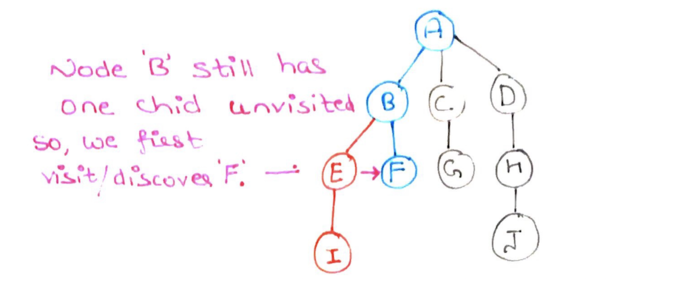 Node 'B' still has
one chid unvisited
so, we first
visit/discover 'F'. —
A
B
C
D
E
F
G
H
I
J